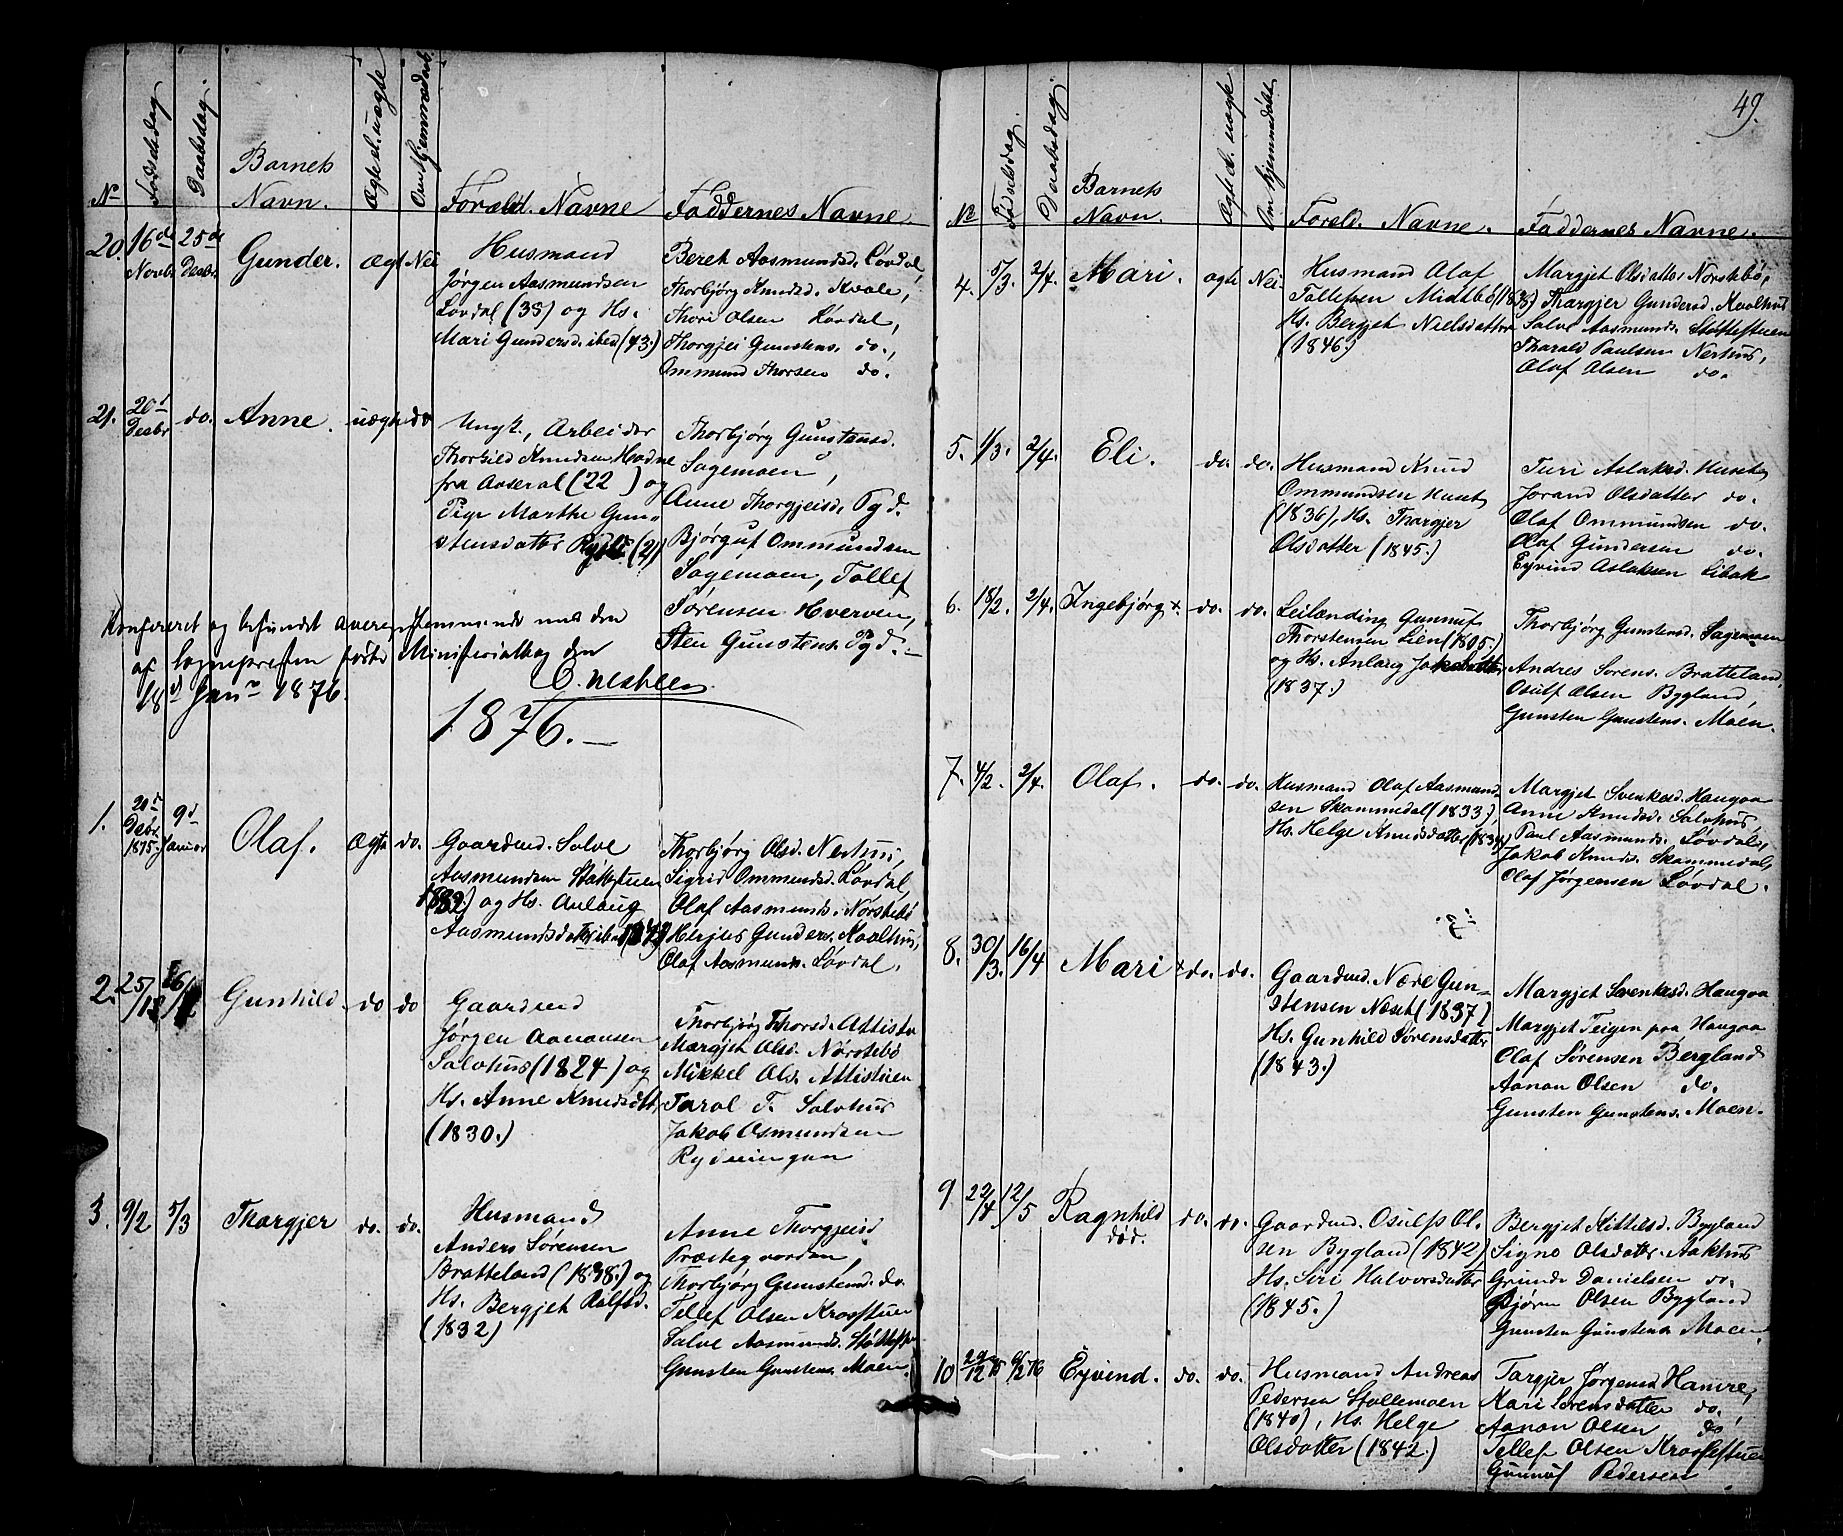 No Fødselsdag Daabsdag Barnets Navn. Ægte el. uægte Om hjemmedøbt. Foræld. Navne Faddernes Navne.
20. 16de Novbr 25de Decbr Gunder. ægt. Nei
Husmand
Jørgen Aasmundsen
Løvdal (38) og Hs.
Mari Gundersd. ibid (43.)
Beret Aasmundsd. Løvdal,
Thorbjørg Knudsd. Kvale,
Thori Olsen Løvdal,
Thorgjei Gunstens. do.,
Ommund Thorsen do.
21. 20d Decbr do. Anne. uægte do
Ungk., Arbeider
Thorkild Knudsen Hodne
fra Aaseral (22) og
Pige Marthe Gun-
stensdatter (21)
Thorbjørg Gunstensd.
Sagemoen,
Anne Thorgjeisd. Pgd.
Bjørguf Ommundsen
Sagemoen, Tollef
Sørensen Hverven,
Sten Gunstens. Pgd. —
Konfereret og befundet overensstemmende med den
af Sognepresten førte Ministerialbog den
18d Janr 1876.
1876. —
1. 21d Decbr 1875 9d Januar Olaf. ægte do.
Gaardmd. Salve
Aasmundsen Støttestuen
(1832) og Hs. Anlaug
Aasmundsdatter ibid
Thorbjørg Olsd. Nertun,
Sigrid Ommundsd. Løvdal,
Olaf Aasmunds. Nørstebø
Herjus Gunders. Kvalhus,
Olaf Aasmunds. Løvdal.
2. 25/12 Gunhild. do do
Gaardmd
Jørgen Aanansen
Salohus (1824) og
Hs. Anne Knudsdtt
(1830.)
Thorbjørg Thorsd. Attistu
Margjet Olsd. Nørstebø
Mikkel Ols. Attistuen
Tarol T. Salohus
Jakob Osmundsen
Rydningen
3. 9/2 5/3 Thargjer do. do.
Husmand
Anders Sørensen
Bratteland (1838.) og
Hs. Bergjet Rolfsd.
(1832)
Anne Thorgjeisd
Præstegaarden,
Thorbjørg Gunstensd. do.
Tellef Olsen Krosstuen
Salve Aasmunds. Støttestu
Gunsten Gunstens. Moen.
49.
No Fødselsdag. Daabsdag. Barnets Navn. Ægte el. uægte Om hjemmedøbt Foræld. Navne. Faddernes Navne.
4. 5/3 2/4. Mari. ægte Nei.
Husmand Olaf
Tollefsen Midtbø (1838)
Hs. Bergjet Nielsdatter
(1846.)
Margjet Olsdatter Nørstebø,
Thargjer Gundersd. Kvalhus
Salve Aasmunds. Støttestuen
Tharald Paulsen Nertun,
Olaf Olsen do.
5. 1/3. 2/4. Eli. do. do.
Husmand Knud
Ommundsen Huset
(1836), Hs. Thargjer
Olsdatter (1845.)
Turi Aslaksd. Huset
Jorand Olsdatter do.
Olaf Ommundsen do.
Olaf Gundersen do.
Eyvind Aslaksen Libak
6. 18/2. 2/4. Ingebjørg x. do. do.
Leilænding Gunnuf
Thorstensen Lien (1805.)
og Hs. Anlaug Jakobsdatter
(1837.)
Thorbjørg Gunstensd. Sagemoen
Andres Sørens. Bratteland,
Osulf Olsen Bygland,
Gunsten Gunstens. Moen.
7. 4/2. 2/4. Olaf. do. do.
Husmand Olaf Aasmund-
sen Skammedal (1833),
Hs. Helge Knudsdatter
Margjet Svenkesd. Haugaa
Anne Knudsd. Salohus,
Paul Aasmunds. Løvdal,
Jakob Knuds. Skammedal,
Olaf Jørgensen Løvdal.
8. 30/3. 16/4 Mari x do. do.
Gaardmd. Nære Gun-
stensen Næset (1837)
Hs. Gunhild Sørensdatter
(1843.)
Margjet Svenkesd. Haugaa
Margjet Teigen paa Haugaa
Olaf Sørensen Bergland
Aanon Olsen do.
Gunsten Gunstens. Moen.
9 22/4 12/5 Ragnhild død. do. do.
Gaardmd. Osulf Ol-
sen Bygland (1842),
Hs. Siri Halvorsdatter
(1845.)
Bergjet Kittilsd. Bygland
Signe Olsdatter Aakhus
Grunde Danielsen do.
Bjørn Olsen Bygland
Gunsten Gunstens Moen.
10 29/12 75 6/2 76 Eyvind. do. do.
Husmand Andreas
Pedersen Stallemoen
(1840), Hs. Helge
Olsdatter (1842.)
Targjer Jørgensd Hamre,
Kari Sørensdatter do.
Aanon Olsen do
Tellef Olsen Krosstuen
Gunnuf Pedersen